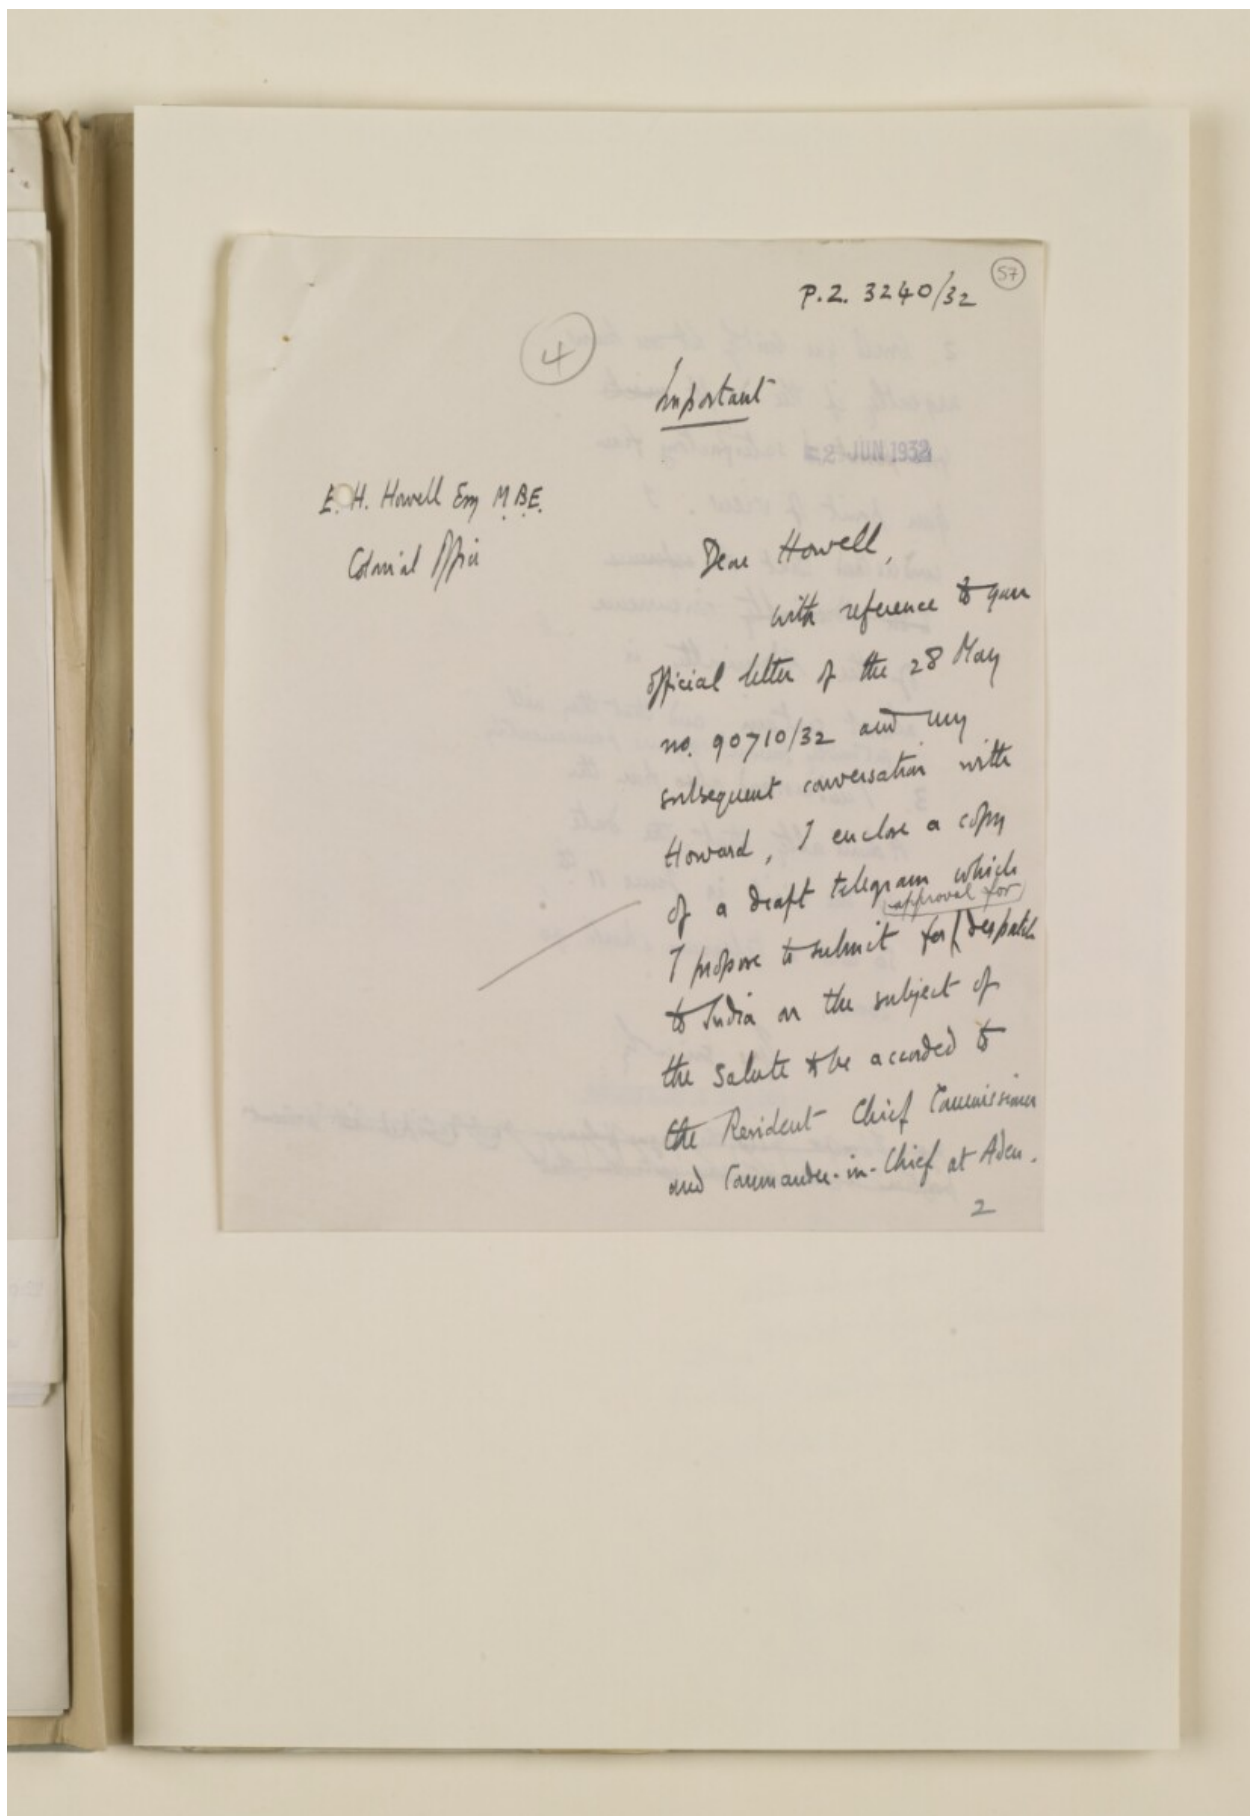 57
P.Z. 3240/32
4
Important
2 JUN 1932
E. H. Howell Esq M.B.E.
Colonial Office
Dear Howell,
with reference to your
official letter of the 28 May
no. 90710/32 and my
subsequent conversation with
Howard, I enclose a copy
of a draft telegram which
approval for
I propose to submit for despatch
to India on the subject of
the salute to be accorded to
the Resident Chief Commissioner
and Commander-in-Chief at Aden.
2